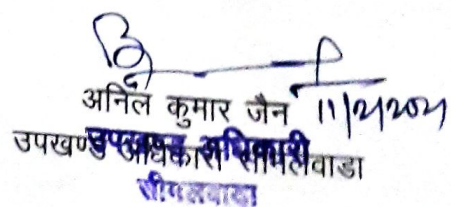 अनिल कुमार जैन 11/2/2021
उपखण्ड अधिकारी सीमलवाडा
उपखण्ड अधिकारी
सीमलवाडा